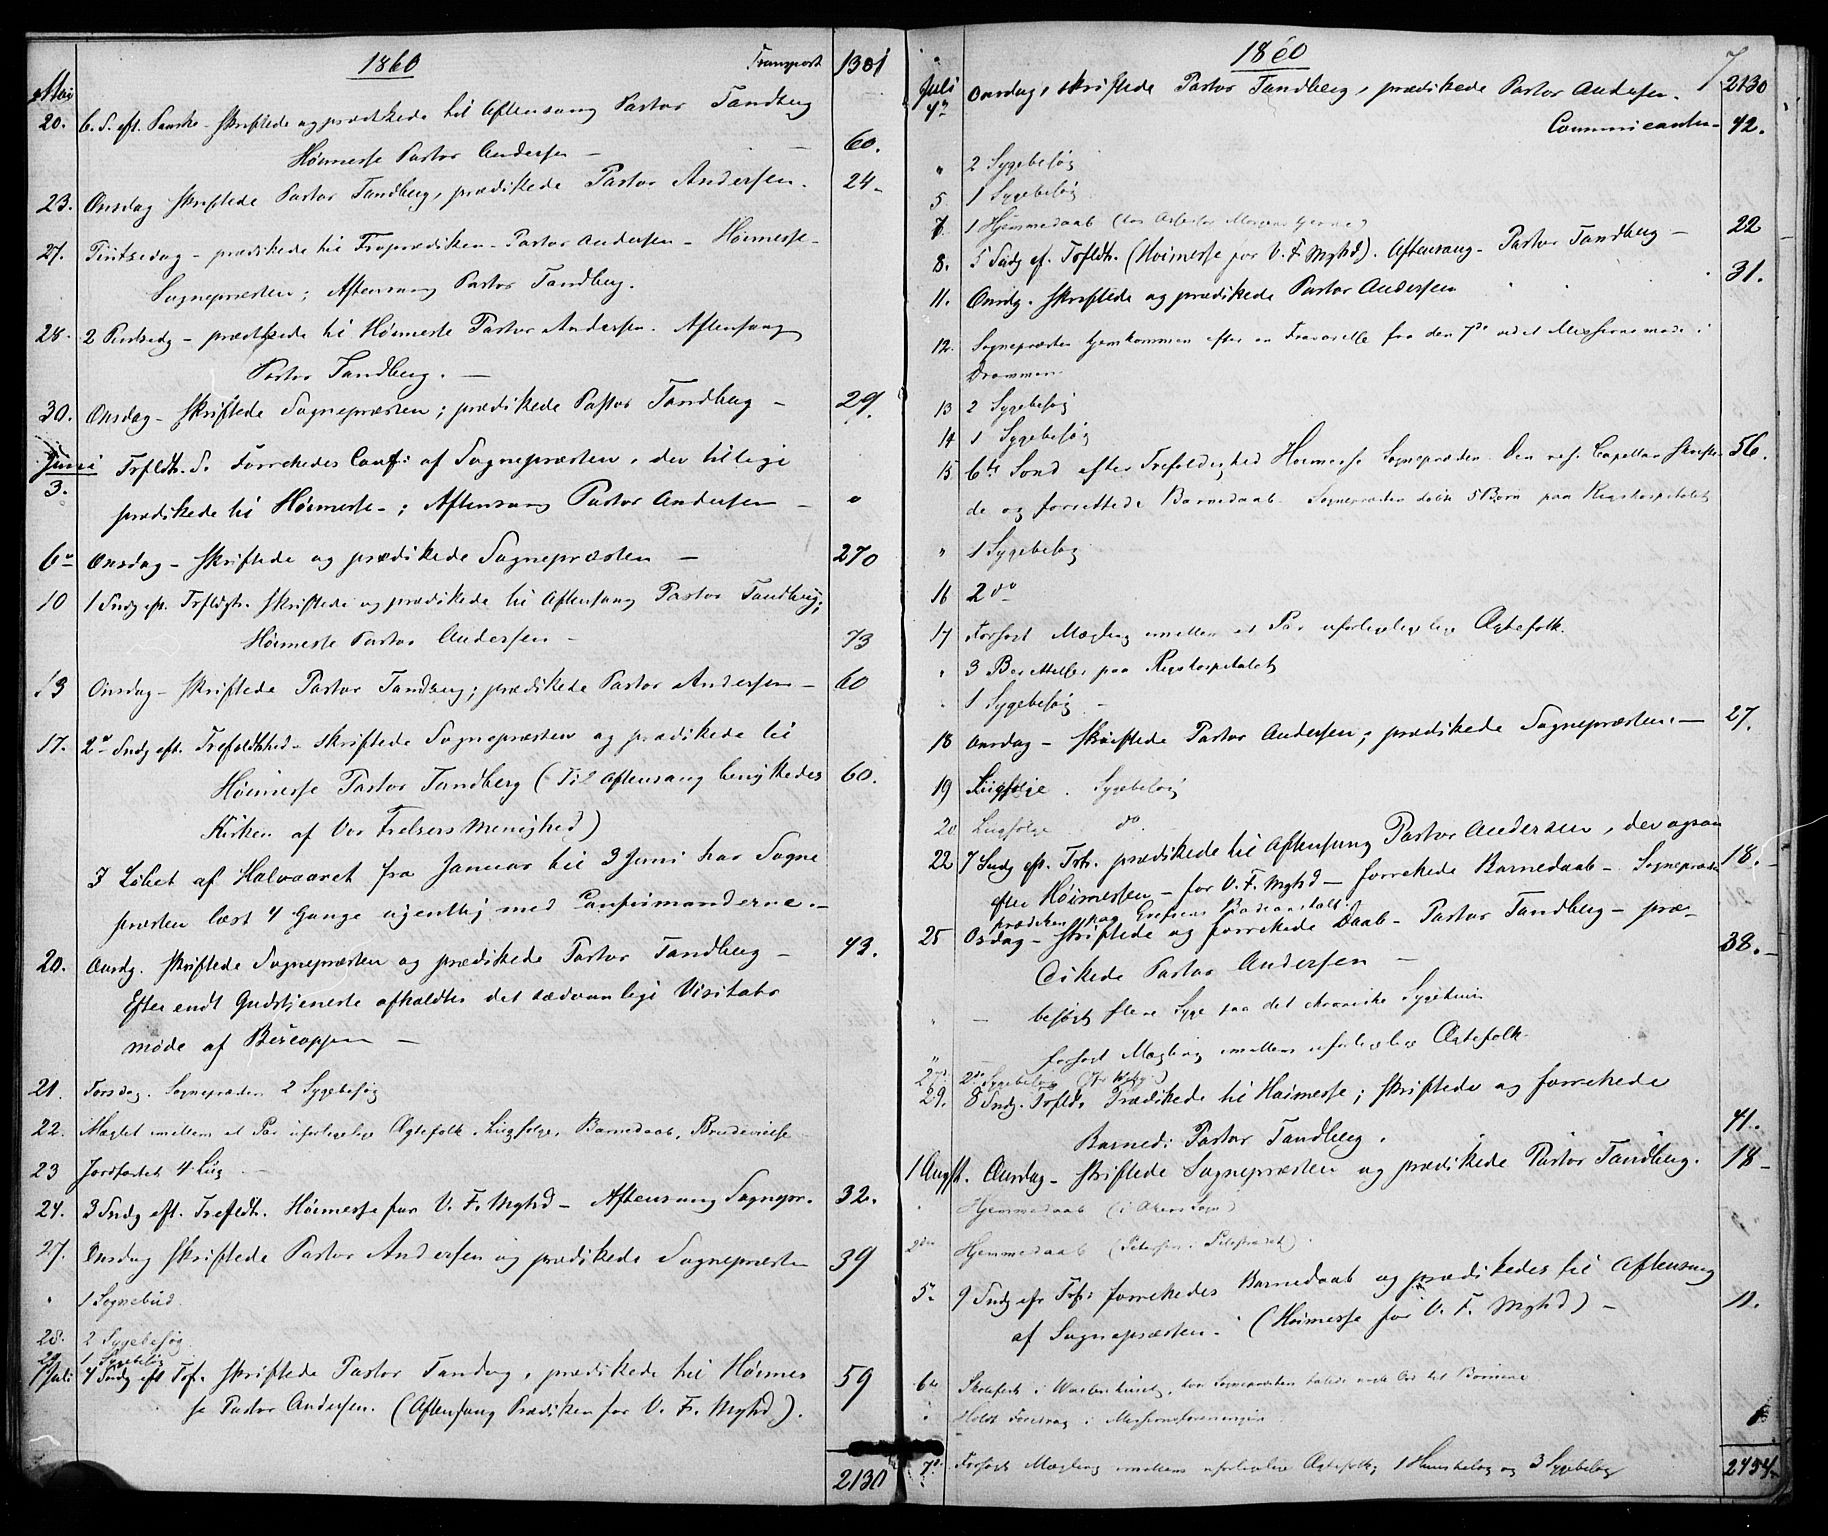 1860
Transport 1301
Mai
20. 6. S. eft. Paaske - skriftede og prædikede til Aftensang Pastor Tandberg
Høimesse Pastor Andersen - 60.
23. Onsdag skriftede Pastor Tandberg, prædikede Pastor Andersen. 24.
27. Pintsedag - prædikede til Froprædiken - Pastor Andersen - Høimesse -
Sognepræsten; Aftensang Pastor Tandberg.
28. 2 Pintsedg - prædikede til Høimesse Pastor Andersen. Aftensang
Pastor Tandberg. -
30. Onsdag - skriftede Sognepræsten; prædikede Pastor Tandberg - 29.
Juni
3. Trfldh. S. Forrettedes Conf: af Sognepræsten, der tillige
prædikede til Høimesse - ; Aftensang Pastor Andersen - "
6 Onsdag - skriftede og prædikede Sognepræsten - 270
10 1 Sndg eft. Trfldgh. skriftede og prædikede til Aftensang Pastor Tandberg;
Høimesse Pastor Andersen - 73
13 Onsdag - skriftede Pastor Tandberg; prædikede Pastor Andersen - 60
17. 2 Sndg eft. Trefoldhed - skriftede Sognepræsten og prædikede til
Høimesse Pastor Tandberg (Til Aftensang benyttedes 60.
Kirken af Vor Frelsers Menighed)
I Løbet af Halvaaret fra Januar til 3 Juni har Sogne
præsten læst 4 Gange ugentlig med Confirmanderne. -
20. Onsdg. skriftede Sognepræsten og prædikede Pastor Tandberg - 43.
Efter endt Gudstjeneste afholdtes det sædvanlige Visitats
møde af Biscoppen -
21. Torsdag. Sognepræsten 2 Sygebesøg
22. Mæglet imellem et Par uforligelige Ægtefolk, Liigfølge, Barnedaab, Brudevielse
23 Jordfæstet 4 Liig
24. 3 Sndg eft. Trefldh. Høimesse for V. F. Mghd - Aftensang Sognepr. 32.
27. Onsdag skriftede Pastor Andersen og prædikede Sognepræsten 39
" 1 Sognebud.
28. 2 Sygebesøg
29 1 Sygebesøg
1 Juli 4 Sndg eft Trf. skriftede Pastor Tandbrg, prædikede til Høimes 59
se Pastor Andersen. (Aftensang Prædiken for V. F. Mghd).
2130
1860
7
Juli
4 Onsdag, skriftede Pastor Tandberg, prædikede Pastor Andersen. 2130
Communicanter 42.
" 2 Sygebesøg
5 1 Sygebesøg
7. 1 Hjemmedaab
8. 5 Sndg ef. Trfldh. (Høimesse for V. F. Mghd). Aftensang - Pastor Tandberg - 22
11. Onsdg. skriftede og prædikede Pastor Andersen 31.
12. Sognepræsten hjemkommen efter en Fraværelse fra den 7de ved et Missionsmøde i
Drammen.
13 2 Sygebesøg
14 1 Sygebesøg
15 6te Sønd efter Trefoldighed Høimesse Sognepræsten. Den res. Capellan skrifte- 56.
de og forrettede Barnedaab. Sognepræsten døbte 5 Børn paa Rigshospitalet
" 1 Sygebesøg
16 2 do
17 Forsøgt Mægling imellem et Par uforligelige Ægtefolk.
" 3 Berettelser paa Rigshospitalet
" 1 Sygebesøg -
18 Onsdag - skriftede Pastor Andersen; prædikede Sognepræsten. - 27.
19 Liigfølge. Sygebesøg
20 Liigfølge do
22 7 Sndg eft. Trh. prædikede til Aftensang Pastor Andersen, der ogsaa
efter Høimessen - for V. F. Mghd - forrettede Barnedaab - Sognepræsten 18. -
prædiken paa Grefsens Badeanstalt.
25 Osdag - skriftede og forrettede Daab - Pastor Tandberg - præ-
dikede Pastor Andersen - 38. -
" - besøgt flere Syge paa det chroniske Sygehuus
" - forsøgt Mægling imellem uforligelige Ægtefolk
29. 8 Sndg. Trfld. Prædikede til Høimesse; skriftede og forrettede
Barned: Pastor Tandberg. 41.
1 Augst. Onsdag - skriftede Sognepræsten og prædikede Pastor Tandberg. 18 -
" Hjemmedaab (i Akers Sogn)
2den Hjemmedaab (Petersen i Pilestrædet).
5. 9 Sndg eft Trf: forrettedes Barnedaab og prædikedes til Aftensang
af Sognepræsten. - (Høimesse for V. F. Mghd) - 11.
6te Skolefest i Waisenhuset, hvor Sognepræsten talede nogle Ord til Børnene
" Holdt Foredrag i Missionsforeningen
7de Forsøgt Mægling imellem uforligelige Ægtefolk, 1 Huusbesøg og 3 Sygebesøg 2434.